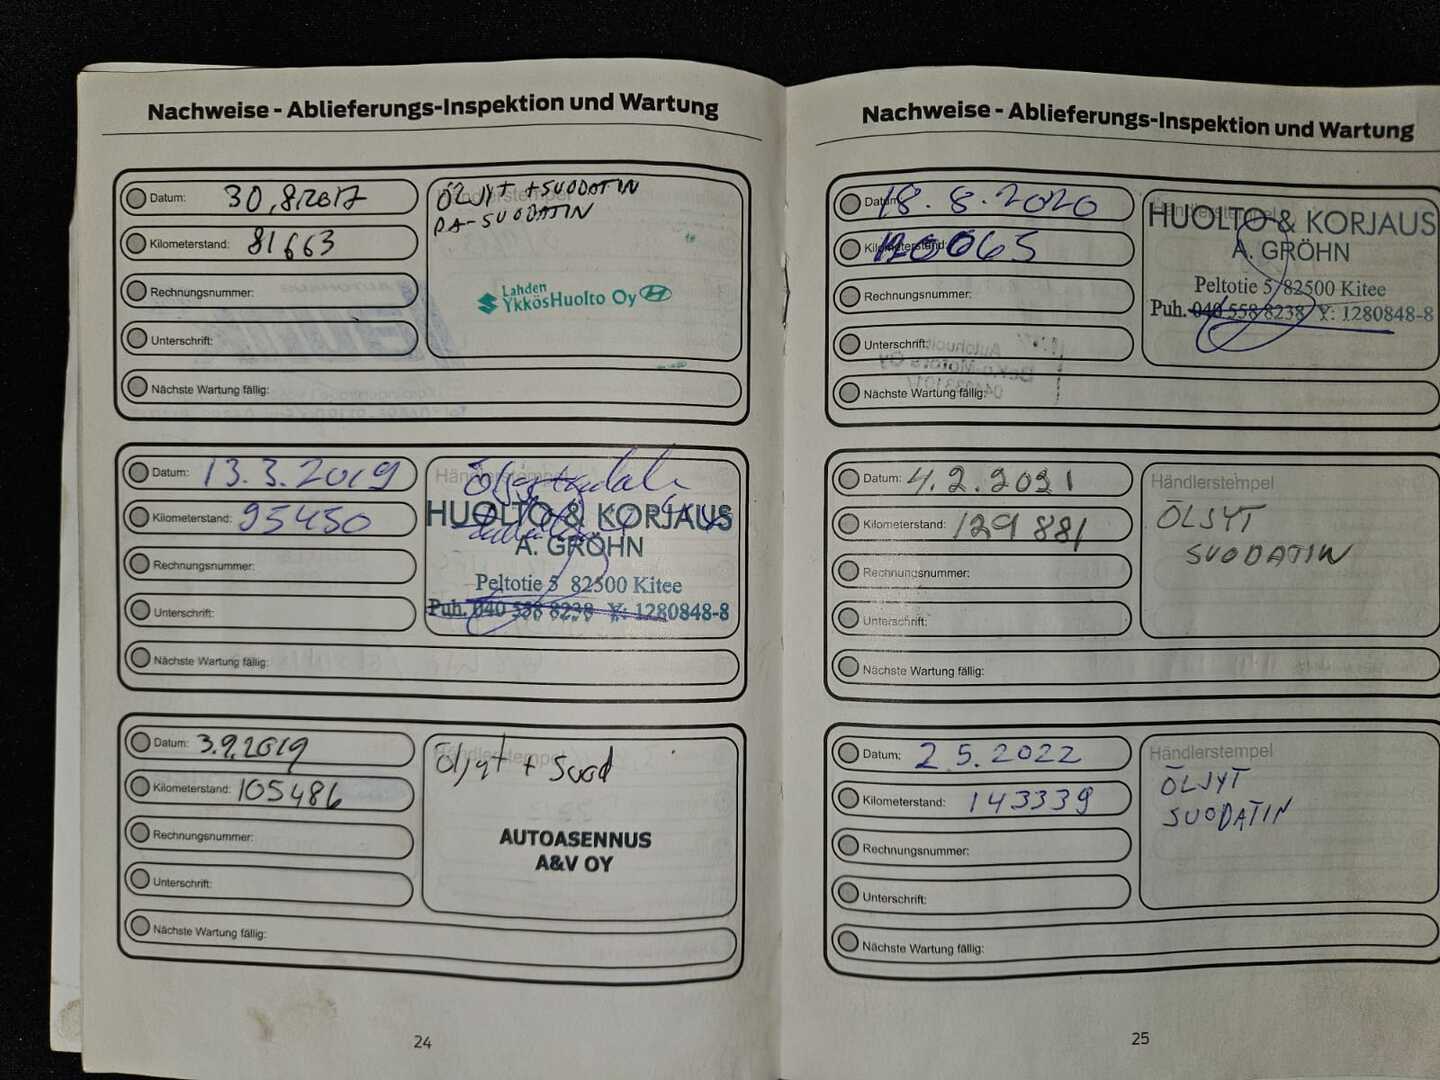 Nachweise - Ablieferungs-Inspektion und Wartung
Datum: 30.8.2017
Kilometerstand: 81663
Rechnungsnummer:
Unterschrift:
Nächste Wartung fällig:
Händlerstempel
ÖLJYT + SUODATIN
RA-SUODATIN
Lahden
YkkösHuolto Oy
Datum: 13.3.2019
Kilometerstand: 95450
Rechnungsnummer:
Unterschrift:
Nächste Wartung fällig:
Händlerstempel
HUOLTO & KORJAUS
A. GRÖHN
Peltotie 5 82500 Kitee
Puh. 040 558 8238 Y: 1280848-8
Datum: 3.9.2019
Kilometerstand: 105486
Rechnungsnummer:
Unterschrift:
Nächste Wartung fällig:
Händlerstempel
Öljyt + Suod
AUTOASENNUS
A&V OY
24
Nachweise - Ablieferungs-Inspektion und Wartung
Datum: 18.8.2020
Kilometerstand: 120065
Rechnungsnummer:
Unterschrift:
Nächste Wartung fällig:
Händlerstempel
HUOLTO & KORJAUS
A. GRÖHN
Peltotie 5 82500 Kitee
Puh. 040 558 8238 Y: 1280848-8
Datum: 4.2.2021
Kilometerstand: 129881
Rechnungsnummer:
Unterschrift:
Nächste Wartung fällig:
Händlerstempel
ÖLJYT
SUODATIN
Datum: 2.5.2022
Kilometerstand: 143339
Rechnungsnummer:
Unterschrift:
Nächste Wartung fällig:
Händlerstempel
ÖLJYT
SUODATIN
25